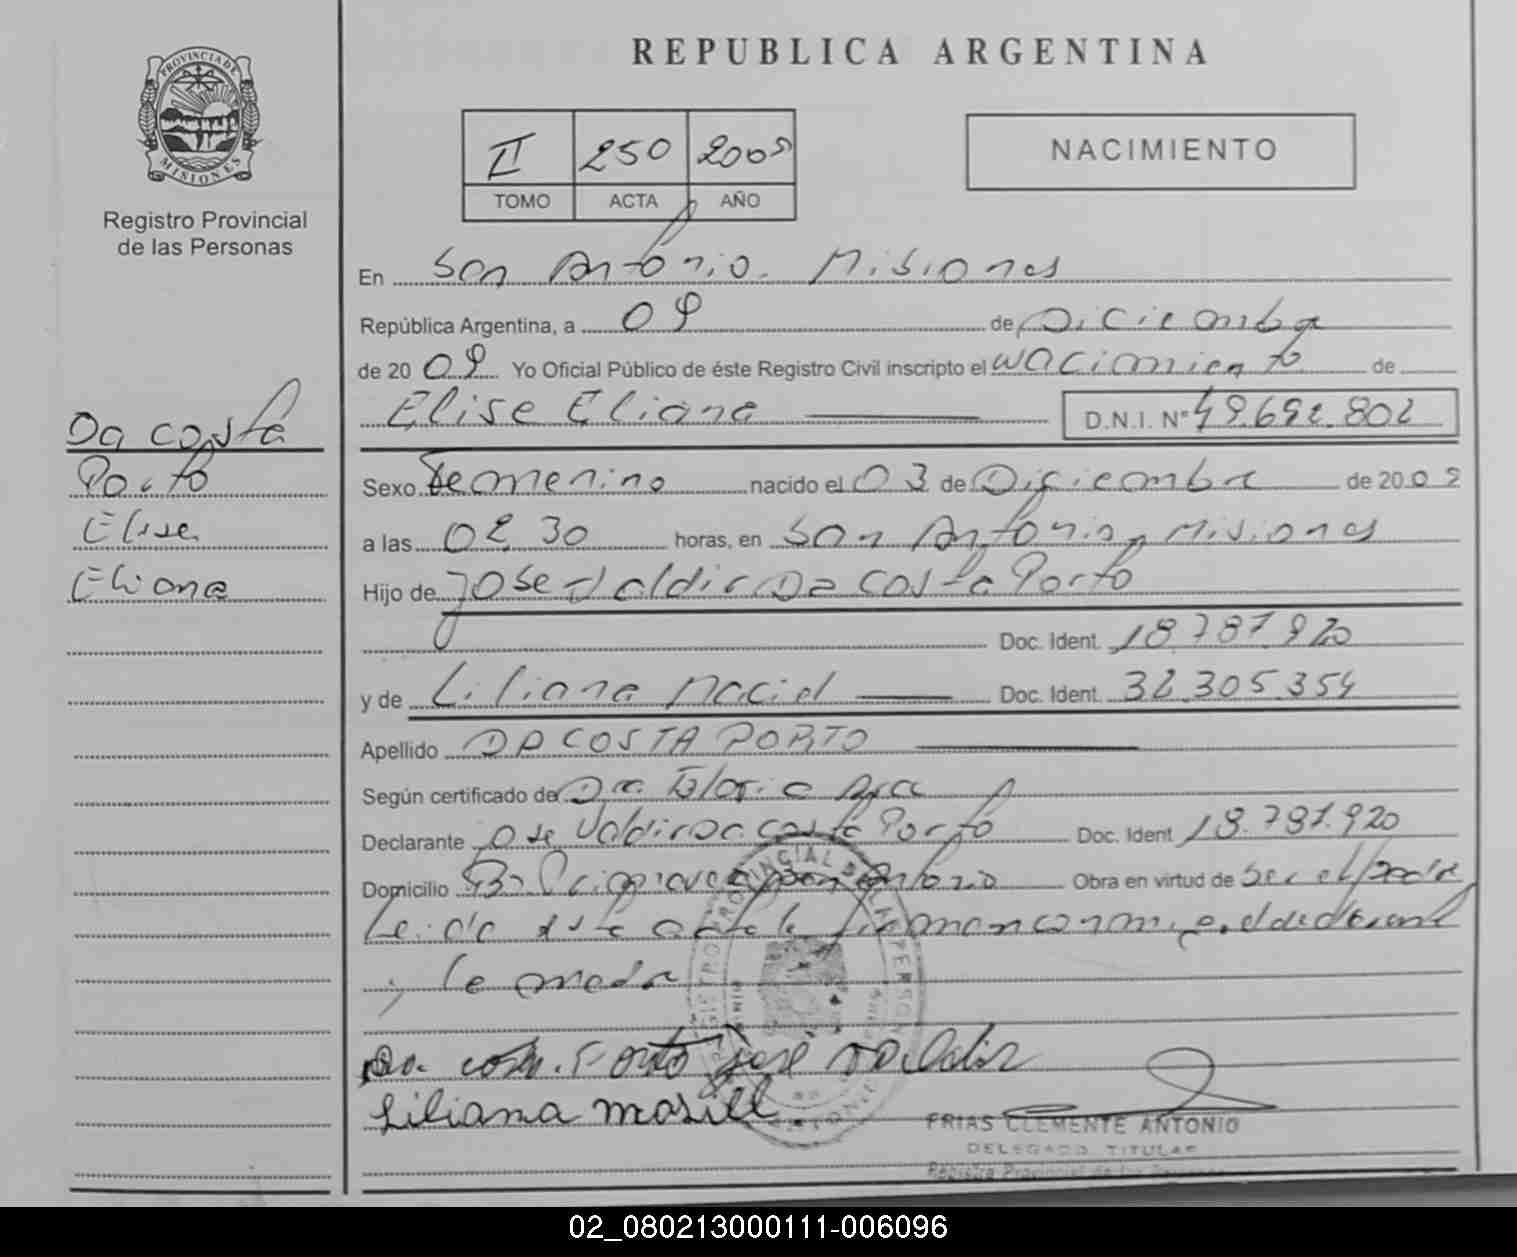 PROVINCIA DE
MISIONES
Registro Provincial
de las Personas
Da costa
Porto
Elise
Eliana
REPUBLICA ARGENTINA
II 250 2009
TOMO ACTA AÑO
NACIMIENTO
En San Antonio. Misiones
República Argentina, a 09 de Diciembre
de 20 09 Yo Oficial Público de éste Registro Civil inscripto el nacimiento de
Elise Eliana D.N.I. Nº 49.692.802
Sexo Femenino nacido el 03 de Diciembre de 20 09
a las 02 30 horas, en San Antonio, Misiones
Hijo de Jose Valdir Da Costa Porto
Doc. Ident. 18.787.920
y de Liliana Maciel Doc. Ident. 32.305.354
Apellido DA COSTA PORTO
Según certificado de Dra.
Declarante Jose Valdir Da Costa Porto Doc. Ident 18.787.920
Domicilio San Antonio Obra en virtud de Ser el padre
Leida esta acta la firman conmigo el declarante
y la madre
Da costa Porto José Valdir
Liliana
FRIAS CLEMENTE ANTONIO
DELEGADO TITULAR
Registro Provincial de las Personas
02_080213000111-006096